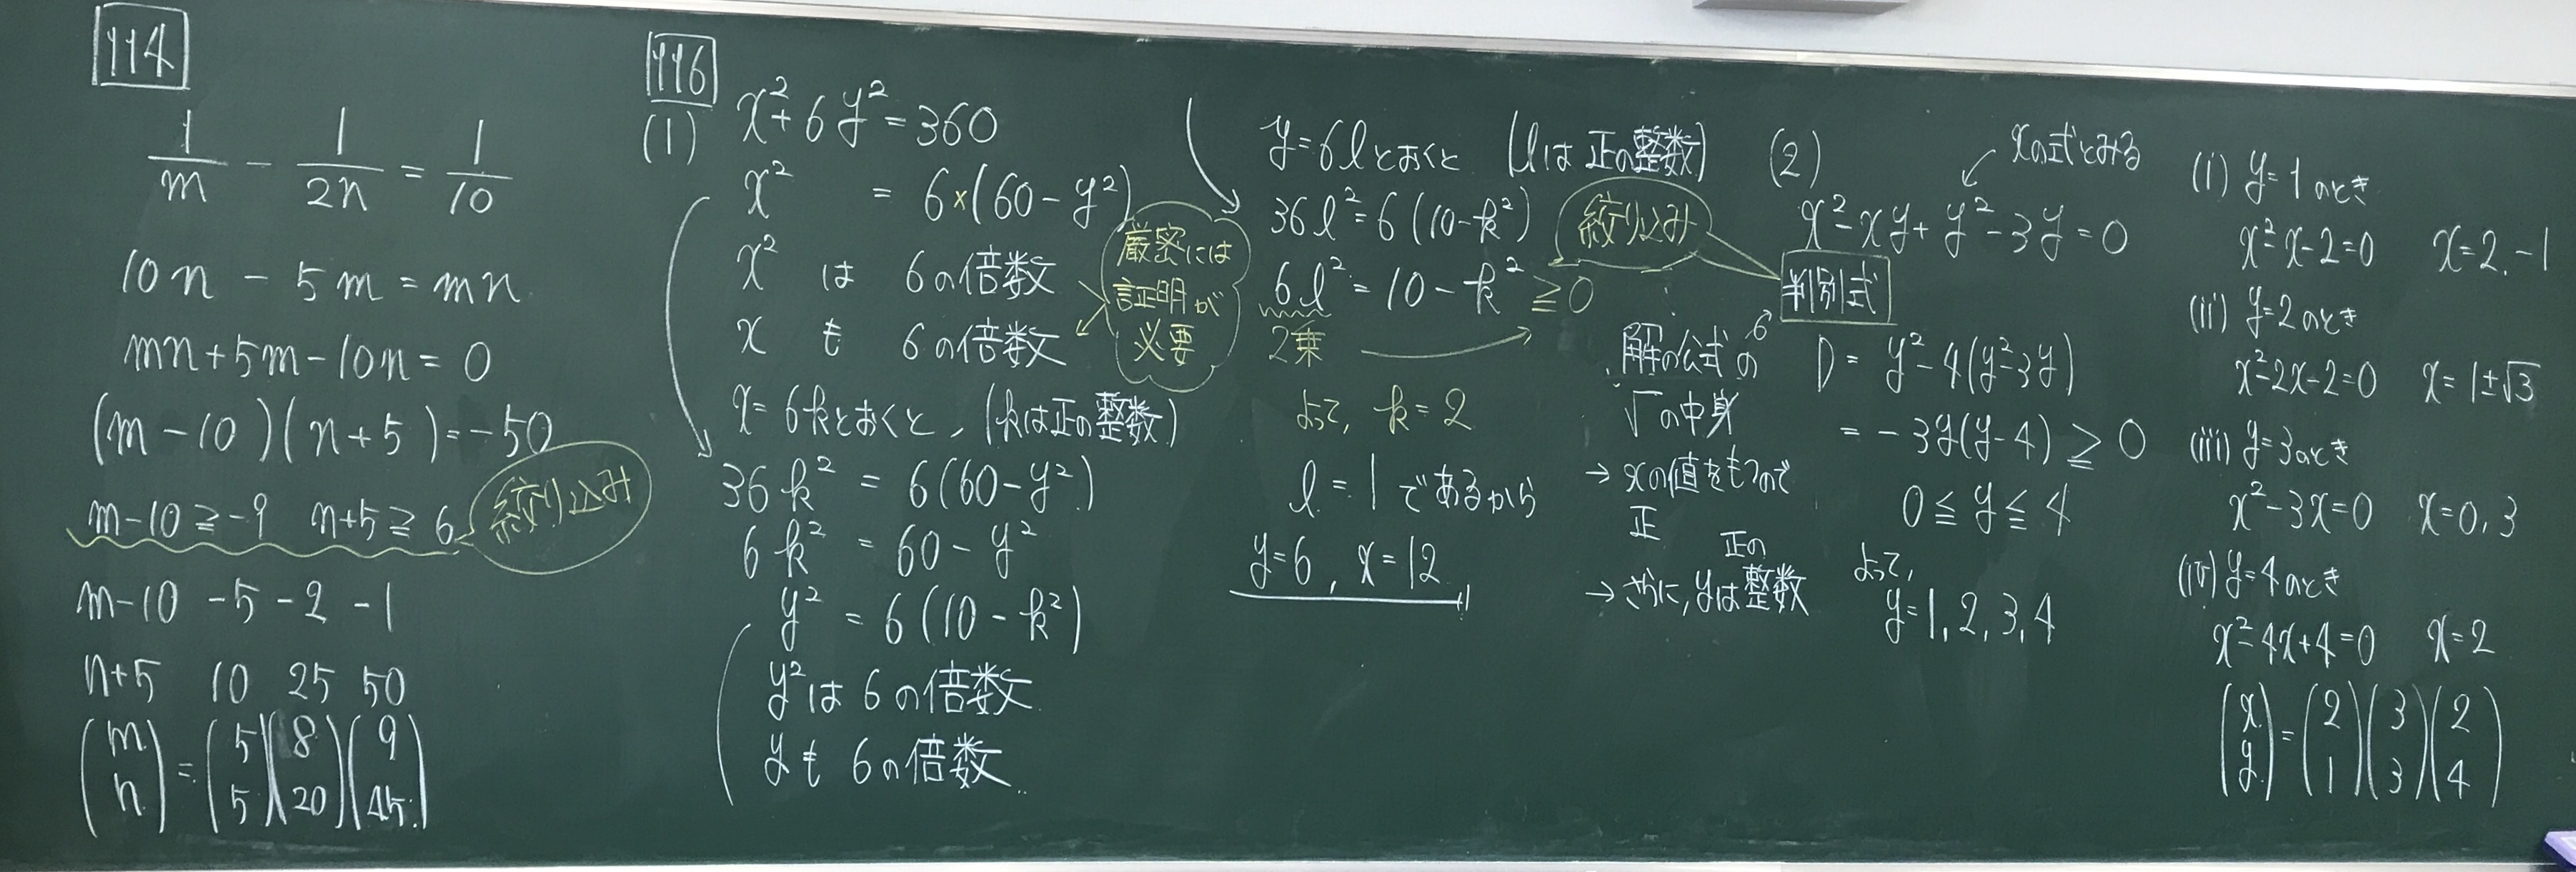 114
1/m - 1/2n = 1/10
10n - 5m = mn
mn+5m-10n = 0
(m-10)(n+5)=-50
m-10≧-9 n+5≧6
絞り込み
m-10 -5 -2 -1
n+5 10 25 50
(m n) = (5 5)(8 20)(9 45)
116
(1) x²+6y²=360
x² = 6×(60-y²)
x² は 6の倍数
x も 6の倍数
厳密には
証明が
必要
x=6kとおくと、(kは正の整数)
36k² = 6(60-y²)
6k² = 60-y²
y² = 6(10-k²)
y²は6の倍数
yも 6の倍数
y=6lとおくと (lは正の整数)
36l²=6(10-k²)
6l²=10-k²≧0
2乗
絞り込み
よって, k=2
l=1であるから
y=6, x=12
(2)
xの式とみる
x²-xy+y²-3y=0
判別式
解の公式の
√の中身
→xの値をもつので
正
→さらに,yは正の整数
D= y²-4(y²-3y)
= -3y(y-4)≧0
0≦y≦4
よって,
y=1,2,3,4
(i) y=1のとき
x²-x-2=0 x=2.-1
(ii) y=2のとき
x²-2x-2=0 x=1±√3
(iii) y=3のとき
x²-3x=0 x=0,3
(iv) y=4のとき
x²-4x+4=0 x=2
(x y) = (2 1)(3 3)(2 4)